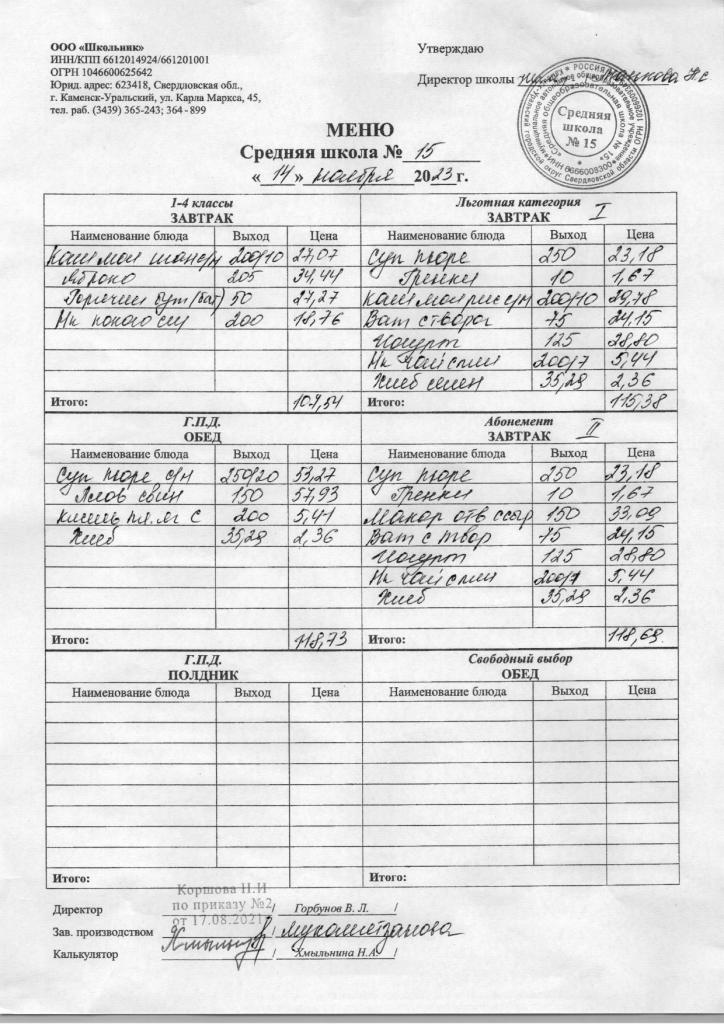 ООО «Школьник»
ИНН/КПП 6612014924/661201001
ОГРН 1046600625642
Юрид. адрес: 623418, Свердловская обл.,
г. Каменск-Уральский, ул. Карла Маркса, 45,
тел. раб. (3439) 365-243; 364 - 899
Утверждаю
Директор школы
Средняя
школа
№ 15
МЕНЮ
Средняя школа № 15
« 14 » ноября 2023г.
1-4 классы
ЗАВТРАК
Наименование блюда Выход Цена
200/10 27,07
Яблоко 205 34,44
50 27,27
200 18,76
Итого: 107,54
Льготная категория
ЗАВТРАК I
Наименование блюда Выход Цена
Суп пюре 250 23,18
Гренки 10 1,67
200/10 29,78
Ват с творог 75 24,15
Йогурт 125 28,80
Нк чай слим 200/7 5,44
Хлеб 35,29 2,36
Итого: 115,38
Г.П.Д.
ОБЕД
Наименование блюда Выход Цена
Суп пюре с/н 250/20 53,27
Плов свин 150 57,93
кисель пл. яг с 200 5,41
Хлеб 35,29 2,36
Итого: 118,73
Абонемент
ЗАВТРАК II
Наименование блюда Выход Цена
Суп пюре 250 23,18
Гренки 10 1,67
Макар отв с сыр 150 33,09
Ват с твор 75 24,15
Йогурт 125 28,80
Нк чай слим 200/7 5,44
Хлеб 35,29 2,36
Итого: 118,69
Г.П.Д.
ПОЛДНИК
Наименование блюда Выход Цена
Итого:
Свободный выбор
ОБЕД
Наименование блюда Выход Цена
Итого:
Коршова Н.И
по приказу №2
от 17.08.2021
Директор / Горбунов В. Л. /
Зав. производством / Мухаметзанова
Калькулятор / Хмыльнина Н.А. /